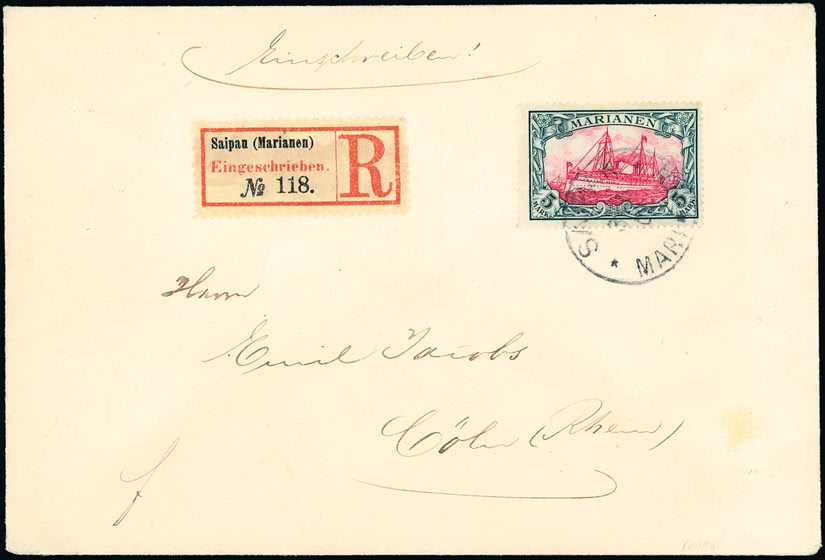 Einschreiben!
Saipan (Marianen)
Eingeschrieben.
№ 118.
R
MARIANEN
5 MARK
5 MARK
Herrn
Emil Jacobs
Cöln (Rhein)